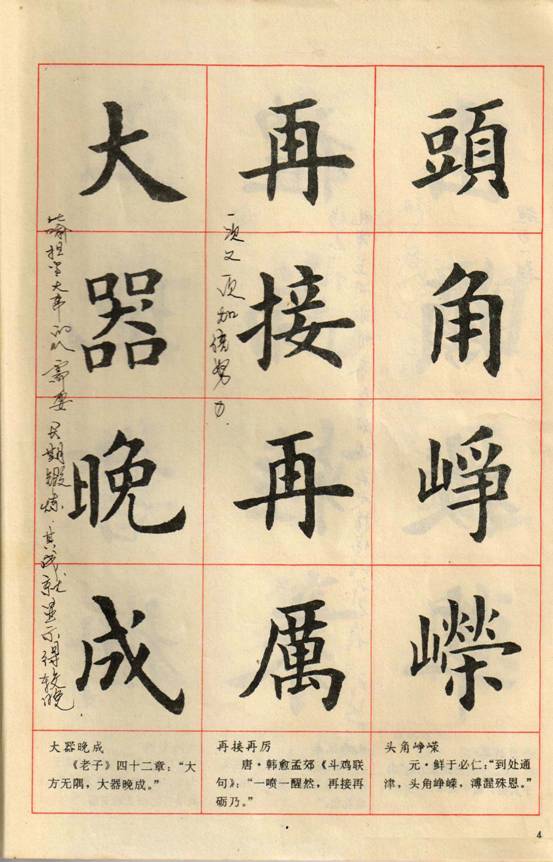 頭角崢嶸
再接再厲
大器晚成
一次又一次加倍努力.
喻担当大事的人需要长期锻炼.其成就显示得较晚.
头角峥嵘
元·鲜于必仁:“到处通
津,头角峥嵘,溥渥殊恩。”
再接再厉
唐·韩愈孟郊《斗鸡联
句》:“一喷一醒然,再接再
砺乃。”
大器晚成
《老子》四十二章:“大
方无隅,大器晚成。”
4